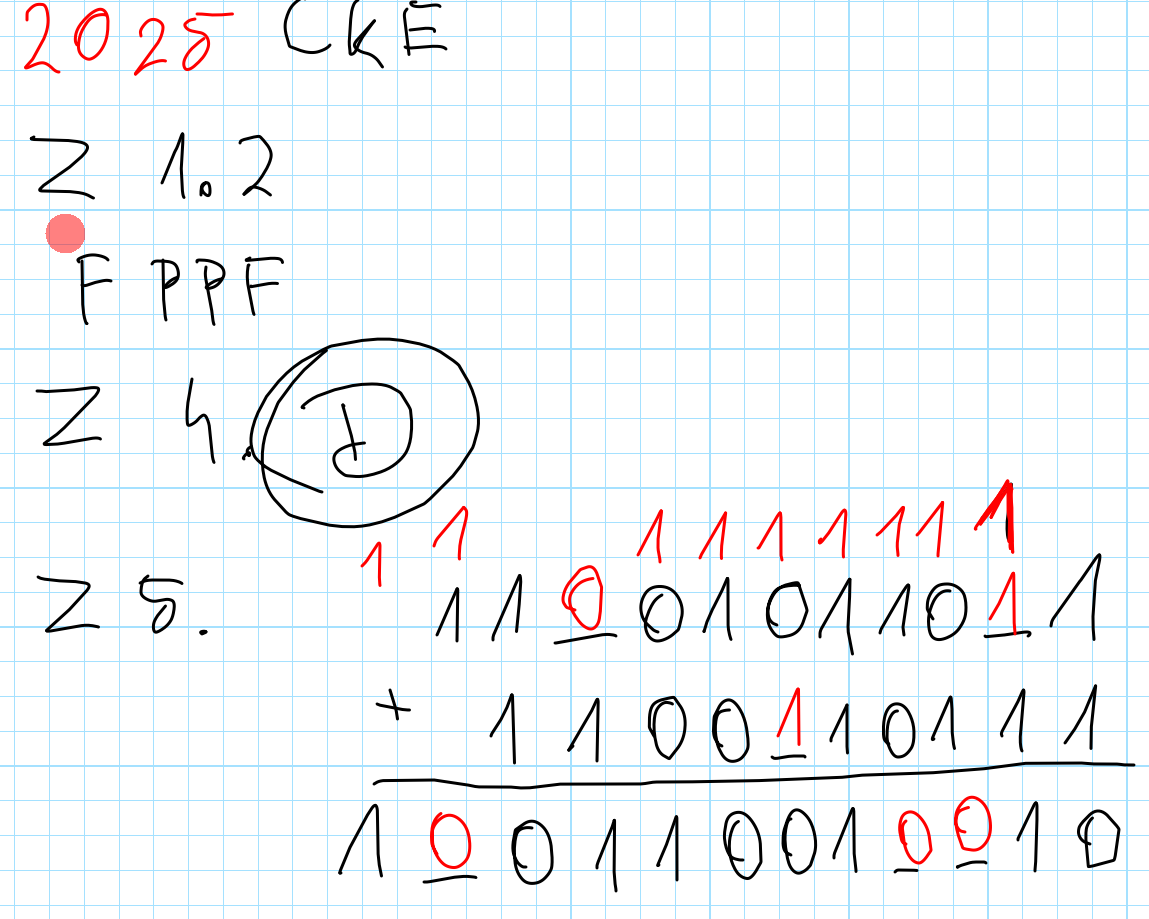 2025 CKE
Z 1.2
F PPF
Z 4. D
1 1 1 1 1 1 1 1 1
Z 5. 1 1 0 0 1 0 1 1 0 1 1
+ 1 1 0 0 1 1 0 1 1 1
1 0 0 1 1 0 0 1 0 0 1 0